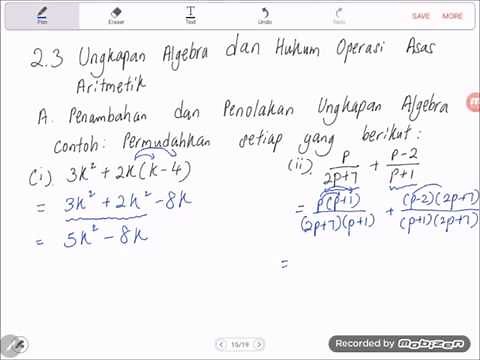 Pen
Eraser
Text
Undo
Redo
SAVE
MORE
2.3 Ungkapan Algebra dan Hukum Operasi Asas
Aritmetik
A. Penambahan dan Penolakan Ungkapan Algebra
Contoh: Permudahkan setiap yang berikut:
(i). 3k² + 2k(k-4)
= 3k² + 2k² - 8k
= 5k² - 8k
(ii). p/(2p+7) + (p-2)/(p+1)
= p(p+1)/(2p+7)(p+1) + (p-2)(2p+7)/(p+1)(2p+7)
=
10/19
Recorded by Mobizen